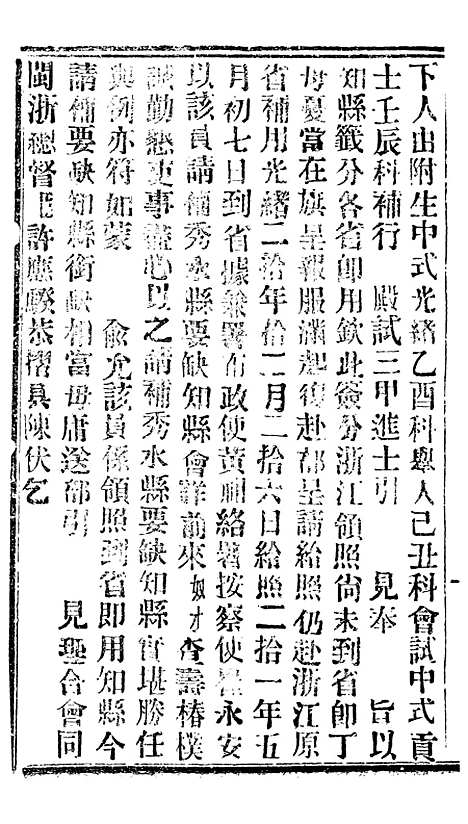 下人由附生中式光緒乙酉科舉人己丑科會試中式貢
士壬辰科補行　殿試三甲進士引　見奉　旨以
知縣籤分各省卽用欽此簽分浙江領照尙未到省卽丁
母憂當在旗呈報服滿起復赴部呈請給照仍赴浙江原
省補用光緒二拾年拾二月二拾六日給照二拾一年五
月初七日到省據兼署布政使黃祖絡署按察使 永安
以該員請補秀水縣要缺知縣會詳前來奴才查壽椿樸
誠勤懇吏事盡心以之請補秀水縣要缺知縣實堪勝任
與例亦符如蒙　俞允該員係領照到省卽用知縣今
請補要缺知縣銜缺相當毋庸送部引　見理合會同
閩浙總督 許應騤恭摺具陳伏乞